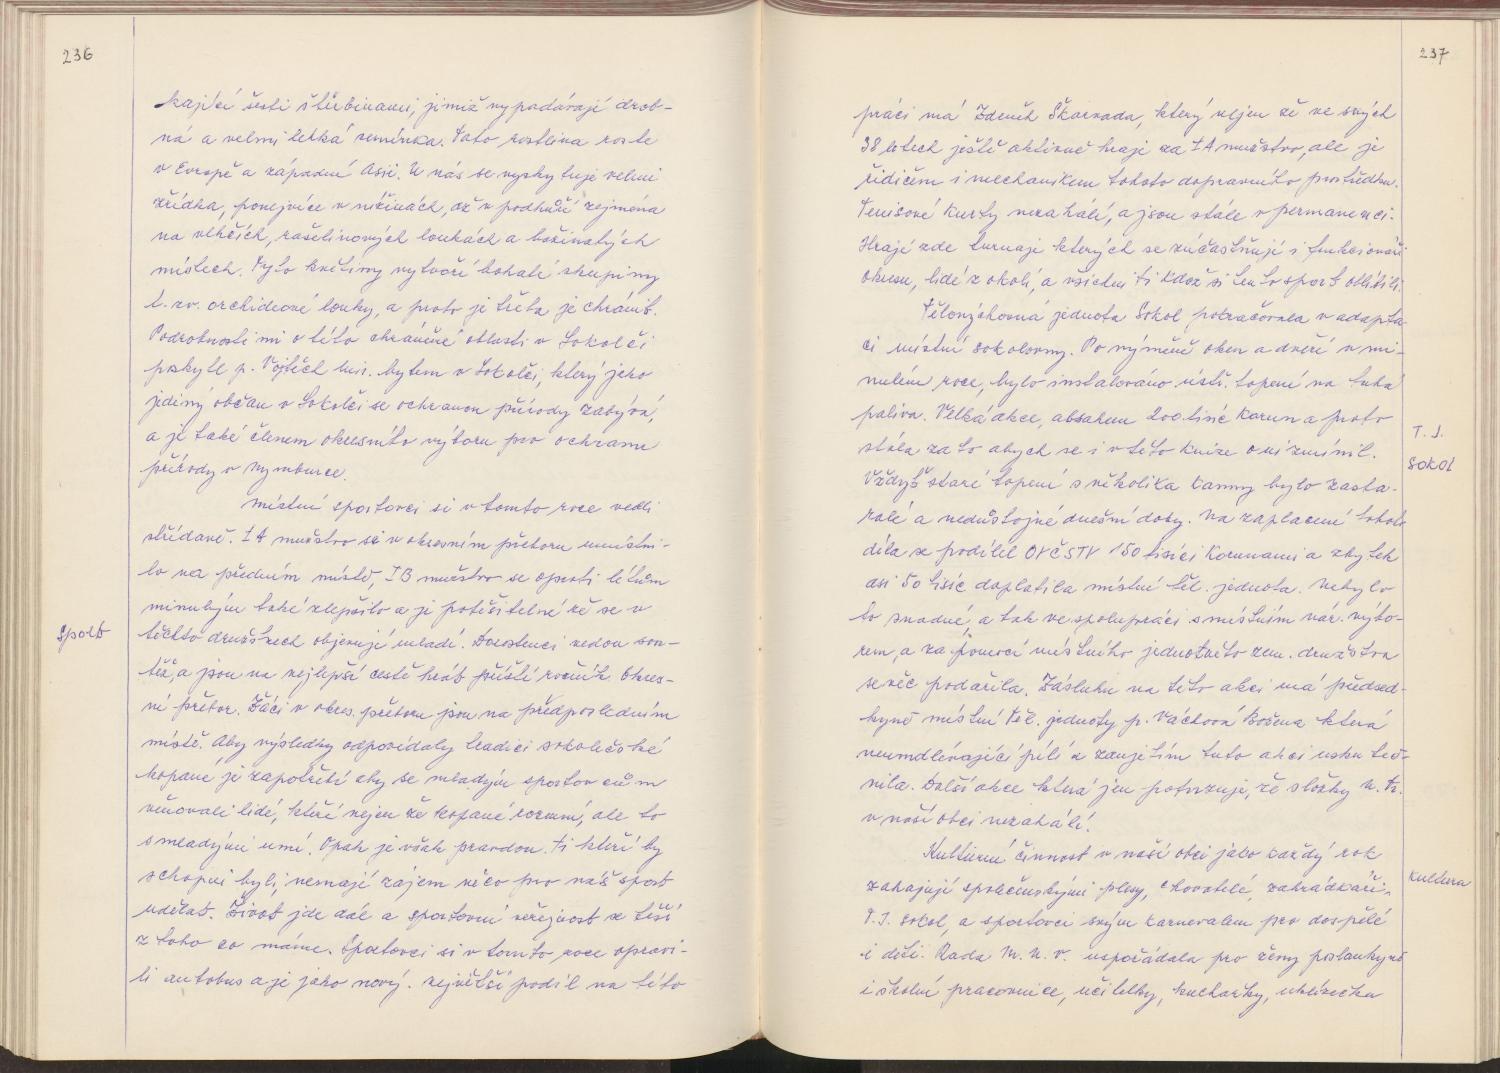 236
kající šesti štěrbinami, jimiž vypadávají drob-
ná a velmi lehká semínka. Tato rostlina roste
v Evropě a západní Asii. U nás se vyskytuje velmi
zřídka, ponejvíce v nížinách, až v podhůří zejména
na vlhčích, rašelinových loukách a bažinatých
místech. Tyto květiny vytvoří bohaté skupiny
t. zv. orchideové louky, a proto je třeba je chránit.
Podrobnostmi o této chráněné oblasti v Sokolči
poskytl p. Vojtěch bytem v Sokolči, který jako
jediný občan v Sokolči se ochranou přírody zabývá,
a je také členem okresního výboru pro ochranu
přírody v Nymburce.
Místní sportovci si v tomto roce vedli
střídavě. IA mužstvo se v okresním přeboru umístni-
lo na předním místě, IB mužstvo se oproti létům
minulým také zlepšilo a je potěšitelné že se v
těchto družstvech objevují mladí. Dorostenci vedou sou-
těž, a jsou na nejlepší cestě hrát příští ročník Okres-
ní přebor. Žáci v okres. přeboru jsou na předposledním
místě. Aby výsledky odpovídaly tradici sokolečské
kopané je zapotřebí aby se mladým sportovcům
věnovali lidé, kteří nejen že kopané rozumí, ale to
s mladými umí. Opak je však pravdou. Ti kteří by
schopni byli, nemají zájem něco pro náš sport
udělat. Život jde dál a sportovní veřejnost se těší
z toho co máme. Sportovci si v tomto roce opravi-
li autobus a je jako nový. největší podíl na této
Sport
237
práci má Zdeněk Škarvada, který nejen že ve svých
38 letech ještě aktivně hraje za IA mužstvo, ale je
řidičem i mechanikem tohoto dopravního prostředku.
Tenisové kurty nezahálí, a jsou stále v permanenci.
Hrají zde turnaje kterých se zúčastňují i funkcionáři
okresu, lidé z okolí, a všichni ti kdož si tento sport oblíbili.
Tělovýchovná jednota Sokol pokračovala v adapta-
ci místní sokolovny. Po výměně oken a dveří v mi-
nulém roce, bylo instalováno ústř. topení na tuhá
paliva. Velká akce, obsahem 200 tisíc Korun a proto
stála za to abych se i v této knize o ní zmínil.
Vždyť staré topení s několika kamny bylo zasta-
ralé a nedůstojné dnešní doby. Na zaplacení tohoto
díla se podílel OVČSTV 150 tisíci Korunami a zbytek
asi 50 tisíc doplatila místní těl. jednota. Nebylo
to snadné, a tak ve spolupráci s místním nár. výbo-
rem, a za pomoci místního jednotného zem. družstva
se věc podařila. Zásluhu na této akci má předsed-
kyně místní Těl. jednoty p. Váchová Božena která
neumdlévající pílí a zaujetím tuto akci uskuteč-
nila. Další akce která jen potvrzuje, že složky N. Fr.
v naší obci nezahálí.
Kulturní činnost v naší obci jako každý rok
zahajují společenskými plesy, chovatelé, zahrádkáři,
T. J. Sokol, a sportovci svým karnevalem pro dospělé
i děti. Rada M. N. V. uspořádala pro ženy poslankyně
i školní pracovnice, učitelky, kuchařky, uklízečku
T. J.
Sokol
Kultura